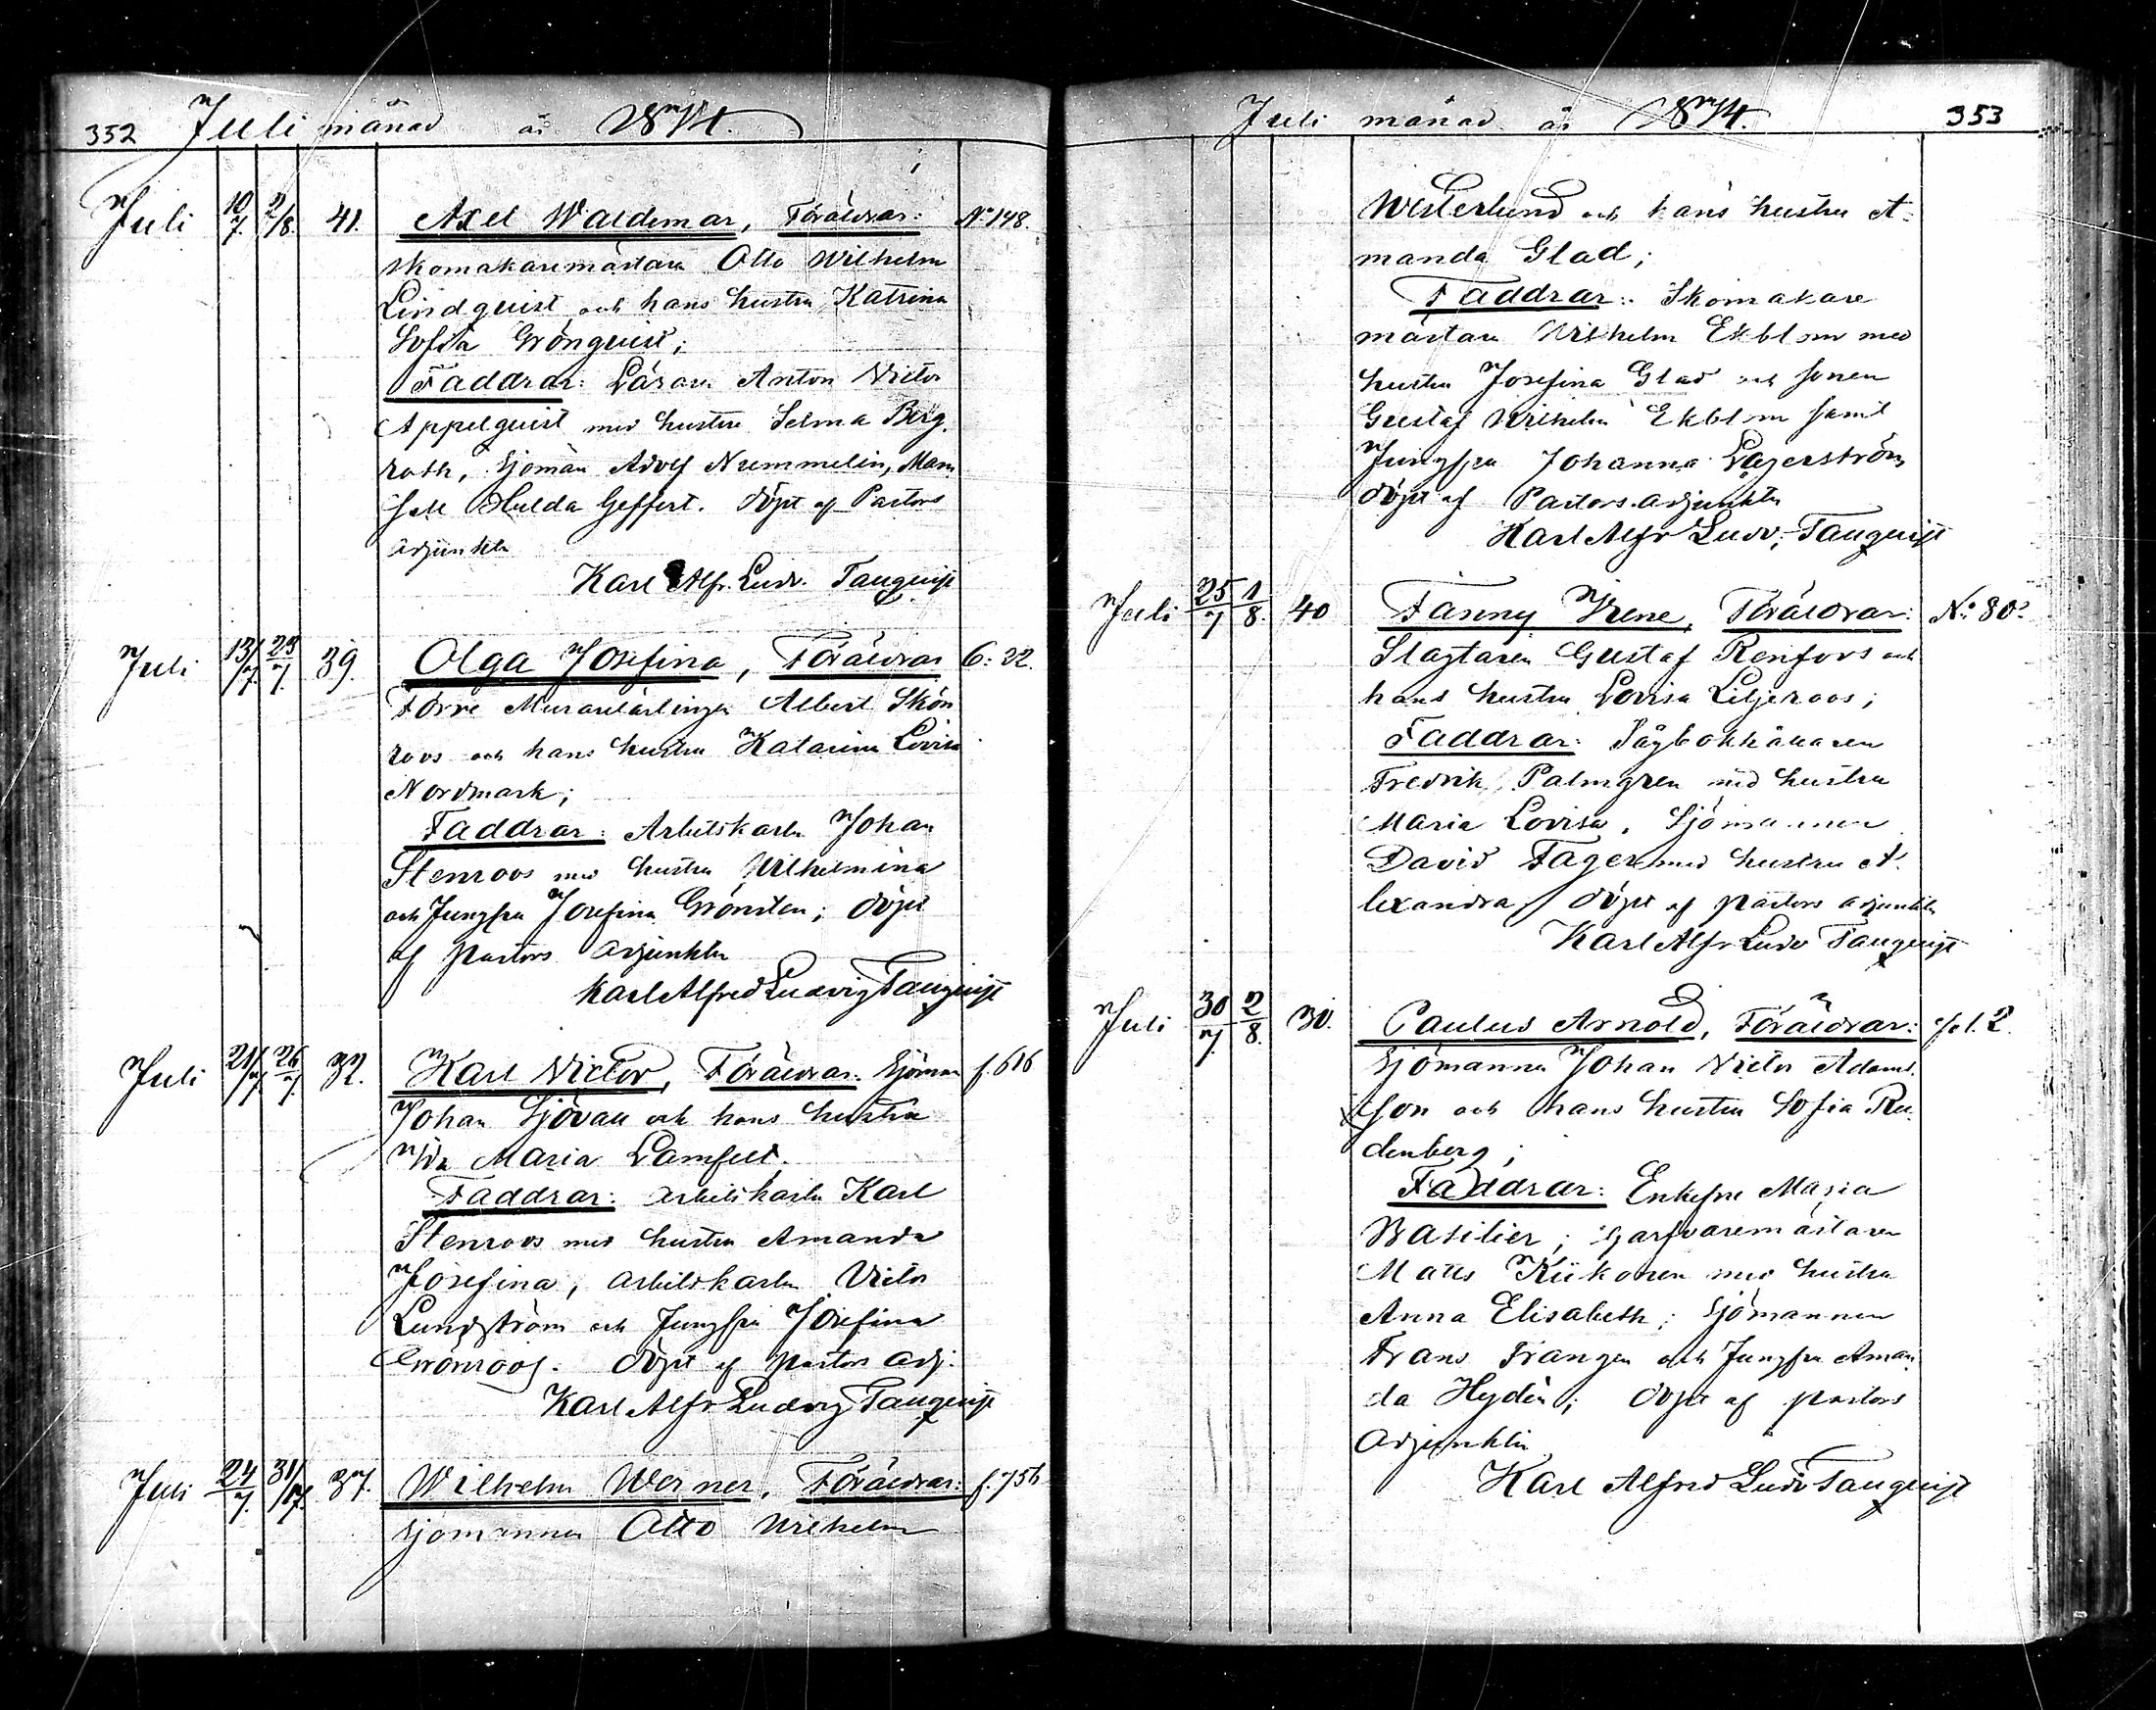 352 Juli månad år 1874.
Juli 10/7. 2/8. 41. Axel Waldemar, Föräldrar: No 148.
skomakaremästaren Otto Wilhelm
Lindquist och hans hustru Katrina
Sofia Grönquist;
Faddrar: Läraren Anton Victor
Appelquist med hustru Selma Berg-
roth, Sjöman Adolf Nummelin, Mam-
sell Hulda Geffert. döpt af Pastors
adjunkten
Karl Alfr. Ludv. Tauquist
Juli 13/7. 23/7. 39. Olga Josefina, Föräldrar 6:22.
Förre Murarelärlingen Albert Skön
roos och hans hustru Katarina Lovisa
Nordmark;
Faddrar: Arbetskarln Johan
Stenroos med hustru Wilhelmina
och Jungfru Josefina Grönsten; döpt
af pastors adjunkten
Karl Alfred Ludvig Tauquist
Juli 21/7. 26/7. 32. Karl Victor, Föräldrar: Sjöman f. 616
Johan Sjövall och hans hustru
Ida Maria Lamfelt.
Faddrar: arbetskarln Karl
Stenroos med hustru Amanda
Josefina, arbetskarln Victor
Lundström och Jungfru Josefina
Grönroos. döpt af pastors adj.
Karl Alfr Ludvig Tauquist
Juli 24/7. 31/7. 37. Wilhelm Werner, Föräldrar: f. 756
sjömannen Otto Wilhelm
Juli månad år 1874. 353
Westerlund och hans hustru A-
manda Glad;
Faddrar: Skomakare
mästaren Wilhelm Ekblom med
hustru Josefina Glad och sonen
Gustaf Wilhelm Ekblom samt
Jungfru Johanna Lagerström
döpt af Pastors-adjunkten
Karl Alfr Ludv. Tauquist
Juli 25/7 1/8. 40 Fanny Irene, Föräldrar: No 80
Slagtaren Gustaf Renfors och
hans hustru Lovisa Liljeroos;
Faddrar: Sågbokhållaren
Fredrik Palmgren med hustru
Maria Lovisa, Sjömannen
David Fager med hustru A-
lexandra, döpt af pastors adjunkten
Karl Alfr Ludv Tauquist
Juli 30/7. 2/8. 30. Paulus Arnold, Föräldrar: fol. 2.
Sjömannen Johan Victor Adams-
son och hans hustru Sofia Ru-
denberg;
Faddrar: Enkefru Maria
Basilier; garfvaremästaren
Matts Kiikonen med hustru
Anna Elisabeth; Sjömannen
Frans Frangen och Jungfru Aman-
da Hydén; döpt af pastors
Adjunkten
Karl Alfred Ludv Tauquist